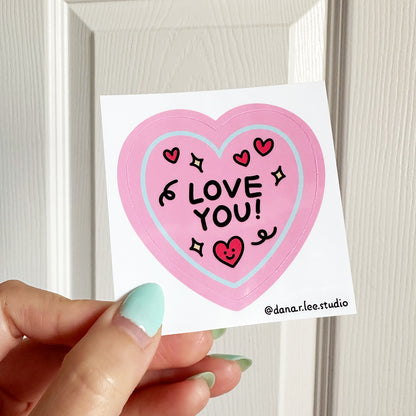 LOVE
YOU!
@dana.r.lee.studio